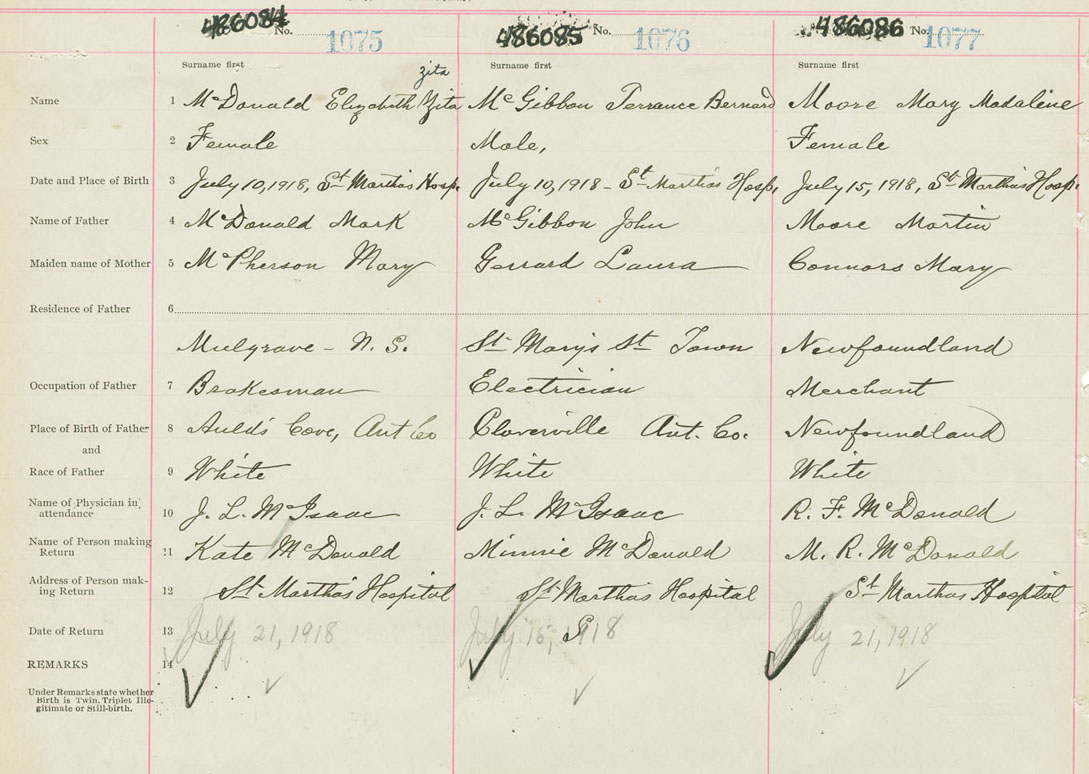 486084 No. 1075 486085 No. 1076 486086 No. 1077
Surname first Surname first Surname first
Zita
Name 1 McDonald Elizabeth Zita McGibbon Terrance Bernard Moore Mary Madaline
Sex 2 Female Male, Female
Date and Place of Birth 3 July 10, 1918, St Martha's Hosp. July 10, 1918 - St Martha's Hosp. July 15, 1918, St Martha's Hosp.
Name of Father 4 McDonald Mark McGibbon John Moore Martin
Maiden name of Mother 5 McPherson Mary Gerrard Laura Connors Mary
Residence of Father 6
Mulgrave - N. S. St Mary's St Town Newfoundland
Occupation of Father 7 Brakesman Electrician Merchant
Place of Birth of Father 8 Auld's Cove, Ant Co Cloverville Ant. Co. Newfoundland
and
Race of Father 9 White White White
Name of Physician in
attendance 10 J. L. McIsaac J. L. McIsaac R. F. McDonald
Name of Person making
Return 11 Kate McDonald Minnie McDonald M. R. McDonald
Address of Person mak-
ing Return 12 St Martha's Hospital St Martha's Hospital St Martha's Hospital
Date of Return 13 July 21, 1918 July 15, 1918 July 21, 1918
REMARKS 14
Under Remarks state whether
Birth is Twin, Triplet Ille-
gitimate or Still-birth.